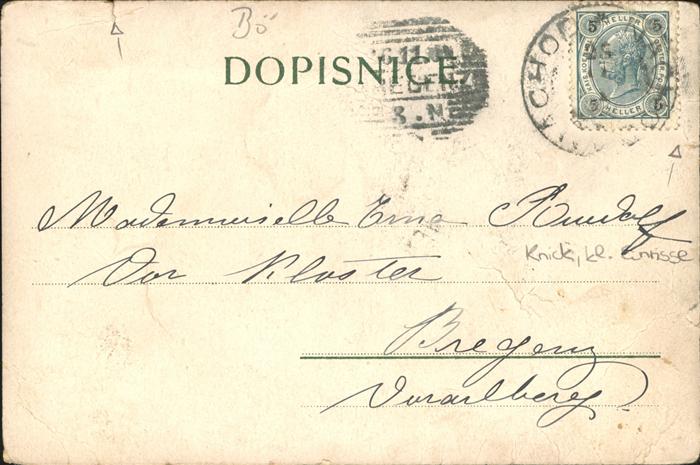 Bö
DOPISNICE.
5 HELLER 5
5 HELLER 5
Mademoiselle Erna Rudolf
Knick, kl. Einrisse
Vor Kloster
Bregenz
Vorarlberg